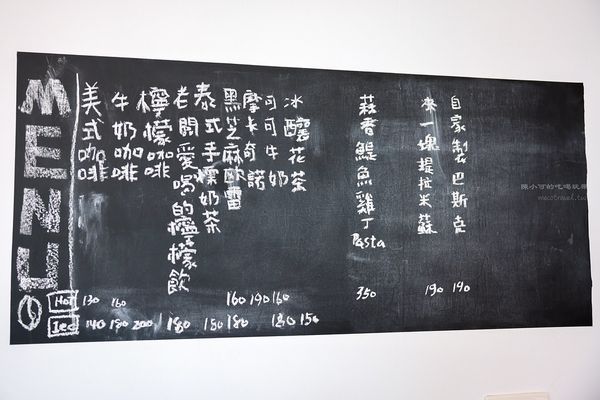 MENU
美式咖啡
牛奶咖啡
檸檬咖啡
老闆愛喝的檸檬飲
泰式手標奶茶
黑芝麻歐蕾
摩卡奇諾
可可牛奶
冰釀花茶
蒜香鯷魚雞丁Pasta
來一塊提拉米蘇
自家製巴斯克
Hot 130 160 160 190 160 350 190 190
Ice 140 180 200 180 150 180 180 150
陳小可的吃喝玩樂